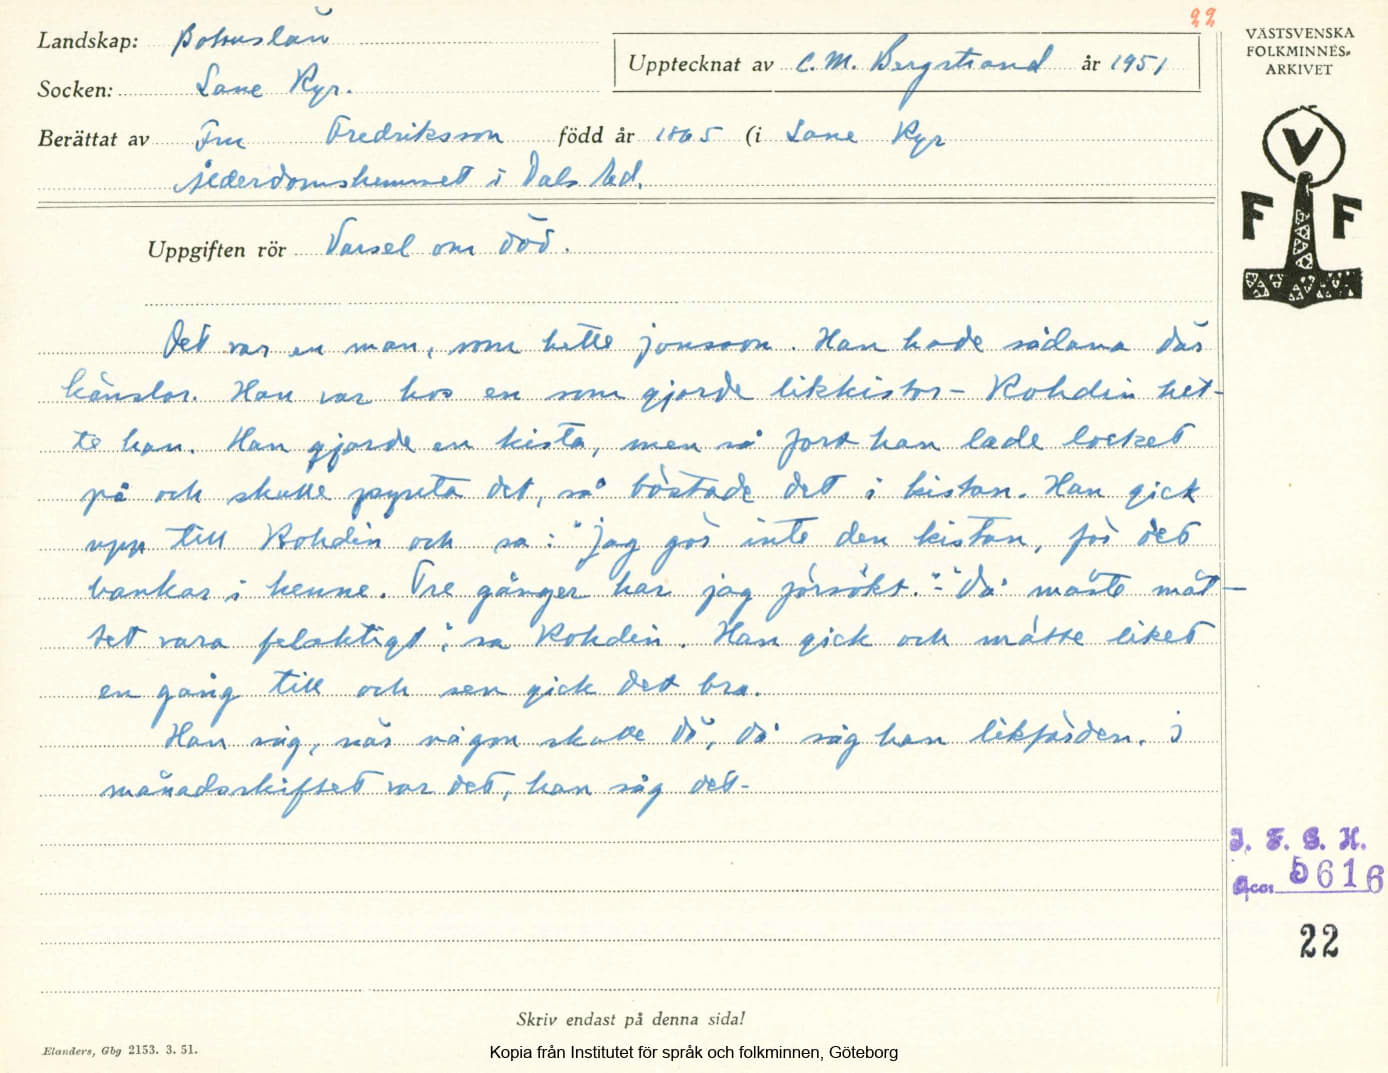 22
Landskap: Bohuslän
Uppteckнat av C. M. Bergstrand år 1951
Socken: Lane Ryr.
Berättat av Fru Fredriksson född år 1865 (i Lane Ryr
Ålderdomshemmet i Dals Ed.
Uppgiften rör Varsel om död.
Det var en man, som hette Jonsson. Han hade sådana där
känslor. Han var hos en som gjorde likkistor – Rohdin het-
te han. Han gjorde en kista, men så fort han lade locket
på och skulle pynta det, så böstade det i kistan. Han gick
upp till Rohdin och sa: "Jag gör inte den kistan, för det
bankar i henne. Tre gånger har jag försökt." – "Då måste måt-
tet vara felaktigt", sa Rohdin. Han gick och mätte liket
en gång till och sen gick det bra.
Han såg, när någon skulle dö, då såg han likfärden. I
månadsskiftet var det, han såg det.
Skriv endast på denna sida!
Elanders, Gbg 2153. 3. 51.
Kopia från Institutet för språk och folkminnen, Göteborg
VÄSTSVENSKA
FOLKMINNES-
ARKIVET
V
F F
I. F. G. H.
Acc: 5616
22